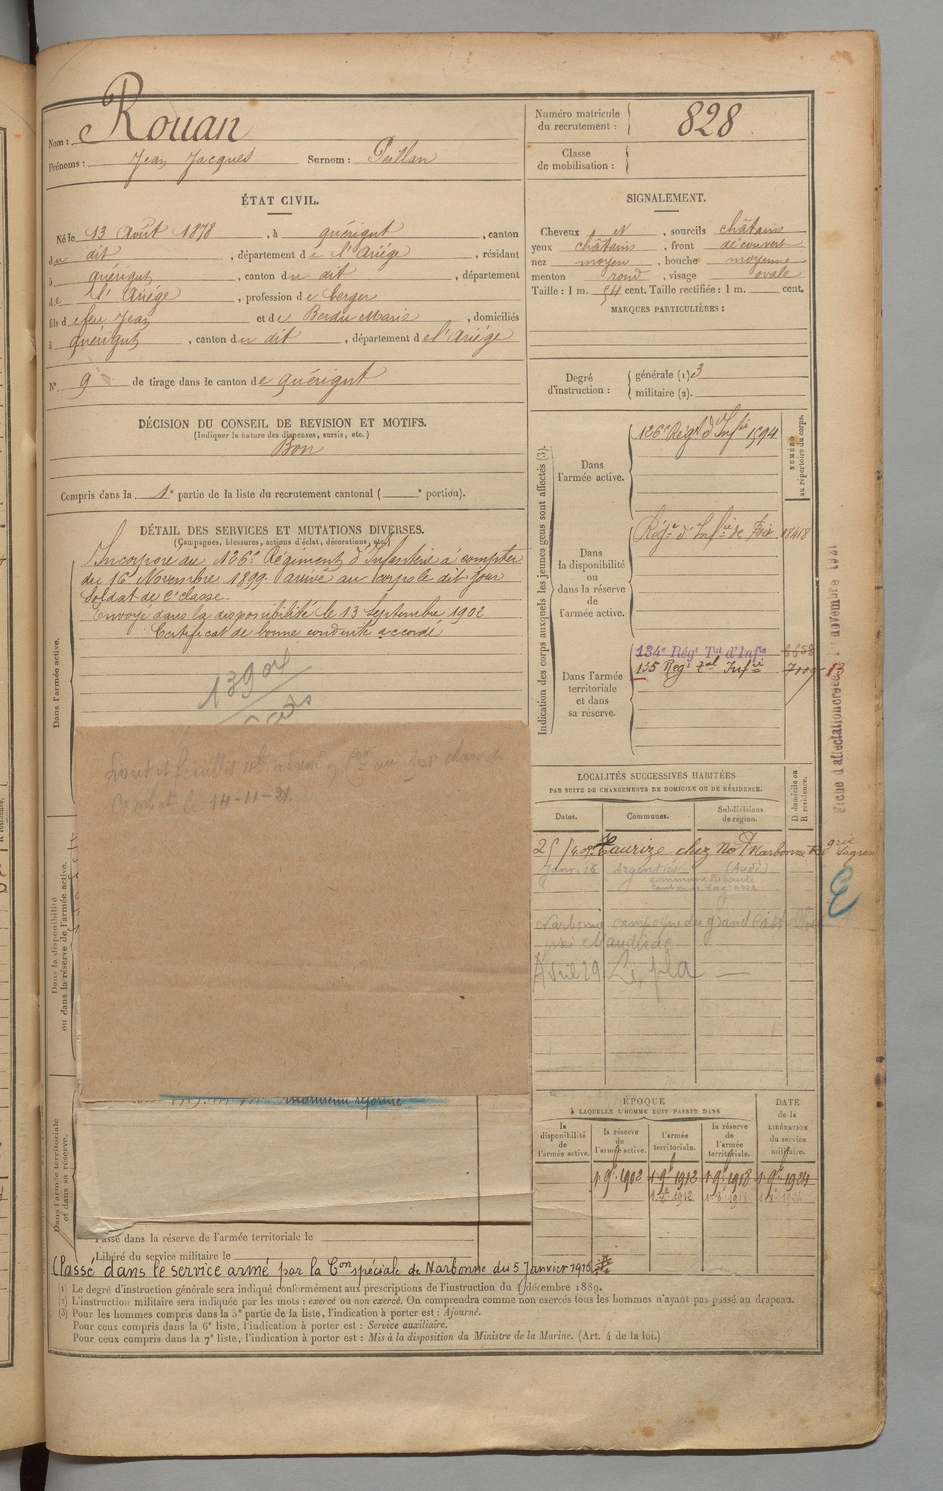 Nom : Rouan
Prénoms : Jean Jacques Surnom : Peillan
ÉTAT CIVIL.
Né le 13 Août 1878, à quérigut, canton
du dit, département de l'Ariège, résidant
à quérigut, canton du dit, département
de l'Ariège, profession de berger
fils de feu Jean et de Bordu Marie, domiciliés
à quérigut, canton du dit, département de l'Ariège
N° 9 de tirage dans le canton de quérigut
DÉCISION DU CONSEIL DE REVISION ET MOTIFS.
(Indiquer la nature des dispenses, sursis, etc.)
Bon
Compris dans la 1e partie de la liste du recrutement cantonal ( e portion).
DÉTAIL DES SERVICES ET MUTATIONS DIVERSES.
(Campagnes, blessures, actions d'éclat, décorations, etc.)
Dans l'armée active.
Incorporé au 126e Régiment d'Infanterie à compter
du 16 Novembre 1899. arrivé au corps le dit jour
Soldat de 2e classe.
Envoyé dans la disponibilité le 13 Septembre 1902
Certificat de bonne conduite accordé
Livret et feuillet
le 14-11-21.
Dans la disponibilité
ou dans la réserve de l'armée active.
maintenu réformé
Dans l'armée territoriale
et dans sa réserve.
Passé dans la réserve de l'armée territoriale le
Libéré du service militaire le
Passé dans le service armé par la Con spéciale de Narbonne du 5 Janvier 1916
Numéro matricule
du recrutement : 828
Classe
de mobilisation :
SIGNALEMENT.
Cheveux N, sourcils châtains
yeux châtains, front découvert
nez moyen, bouche moyenne
menton rond, visage ovale
Taille : 1 m. 54 cent. Taille rectifiée : 1 m. cent.
MARQUES PARTICULIÈRES :
Degré
d'instruction :
générale (1) 3
militaire (2).
Indication des corps auxquels les jeunes gens sont affectés (3).
NUMÉRO
au répertoire du corps.
Dans
l'armée active.
126e Régt d'Infie 1594
Dans
la disponibilité
ou
dans la réserve
de
l'armée active.
Régt d'Infie de Foix 08418
Dans l'armée
territoriale
et dans
sa réserve.
134e Régt Tal d'Infie 6658
135 Régt tal Infie
LOCALITÉS SUCCESSIVES HABITÉES
PAR SUITE DE CHANGEMENTS DE DOMICILE OU DE RÉSIDENCE.
Dates. Communes. Subdivisions de région. D domicile ou R résidence.
Taurize chez Narbonne R
Janv. 16 (Aude)
Narbonne campagne du grand
Avril 29 Le pla
ÉPOQUE
À LAQUELLE L'HOMME DOIT PASSER DANS
DATE
de la
LIBÉRATION
du service
militaire.
la disponibilité de l'armée active. la réserve de l'armée active. l'armée territoriale. la réserve de l'armée territoriale.
1 9bre 1902 1 9bre 1912 1 9bre 1918 1 9bre 1924
(1) Le degré d'instruction générale sera indiqué conformément aux prescriptions de l'instruction du 4 décembre 1889.
(2) L'instruction militaire sera indiquée par les mots : exercé ou non exercé. On comprendra comme non exercés tous les hommes n'ayant pas passé au drapeau.
(3) Pour les hommes compris dans la 5e partie de la liste, l'indication à porter est : Ajourné.
Pour ceux compris dans la 6e liste, l'indication à porter est : Service auxiliaire.
Pour ceux compris dans la 7e liste, l'indication à porter est : Mis à la disposition du Ministre de la Marine. (Art. 4 de la loi.)